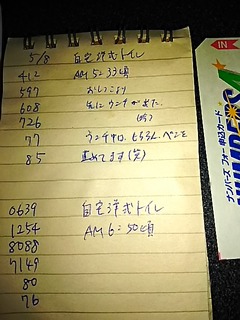 5/8 自宅洋式トイレ
412 AM 5:33頃
597 おしっこより
608 先にウンチが出た。
726 (笑)
77 ウンチ中、もちろん、ペンを
85 止めてます(笑)
0639 自宅洋式トイレ
1254 AM 6:50頃
8088
7149
80
76
IN
ナンバーズ フォー 申込カード
NUMBERS